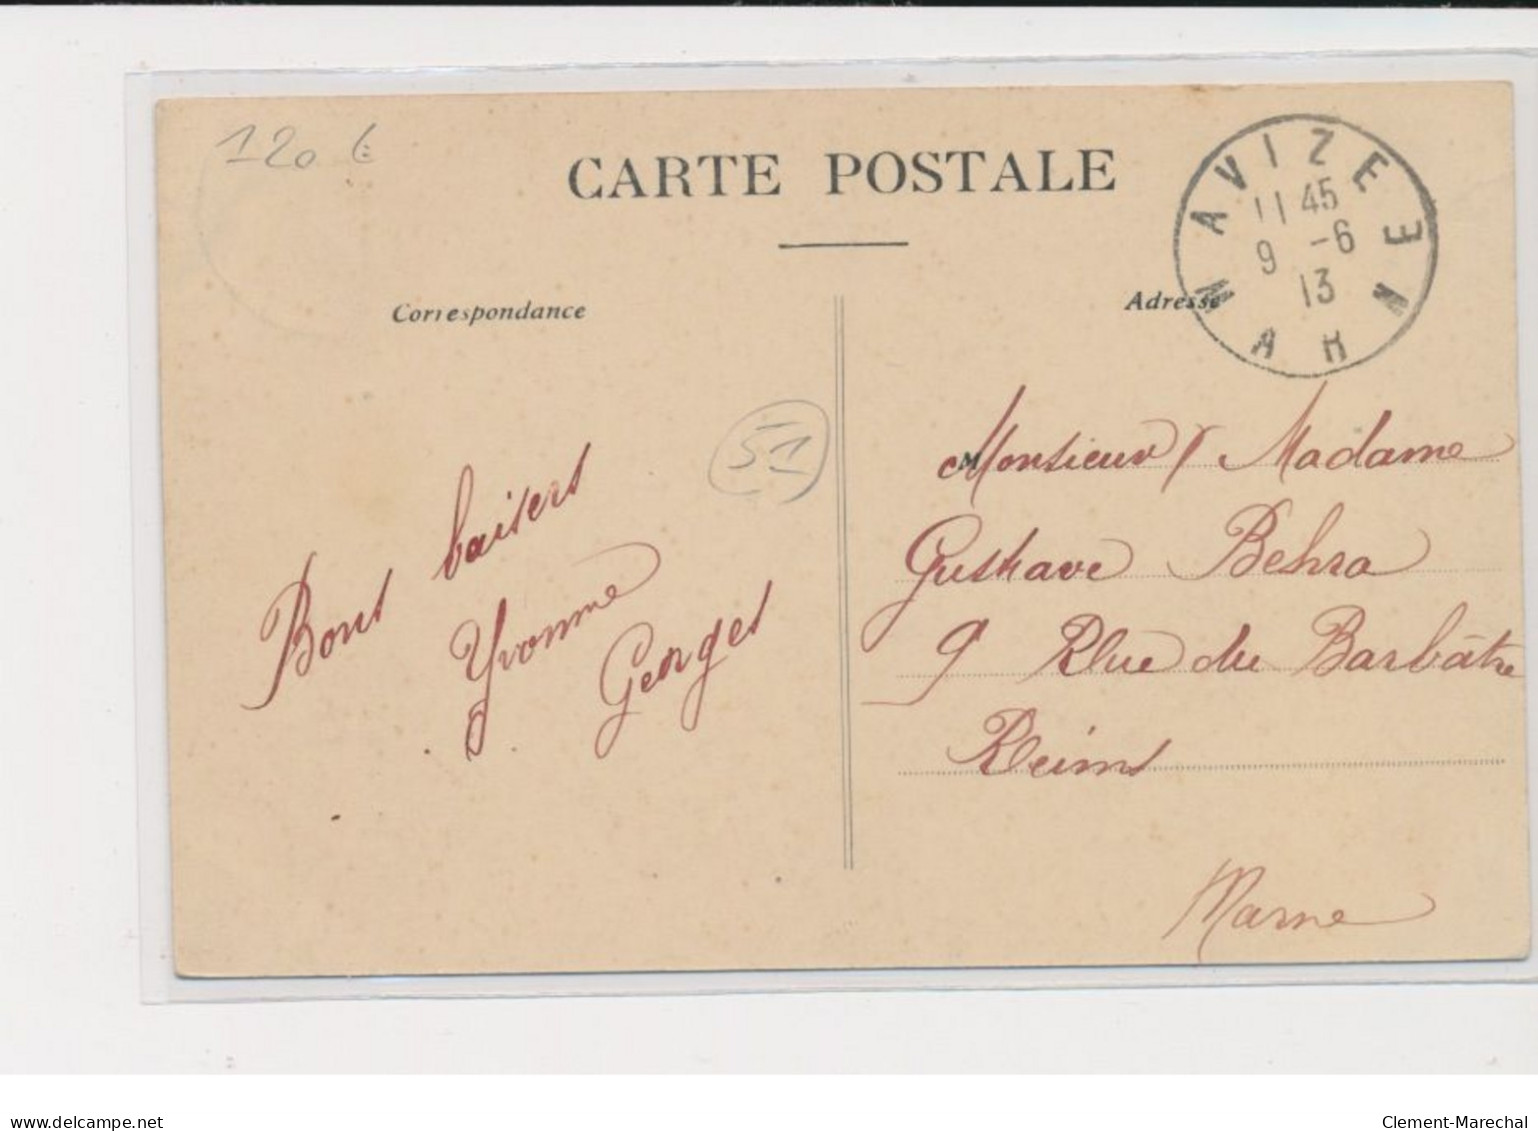 120 €
CARTE POSTALE
AVIZE
11 45
9 -6
13
MARNE
Correspondance
Adresse
51
Bons baisers
Yvonne
Georges
Monsieur Madame
Gustave Behra
9 Rue du Barbâtre
Reims
Marne
delcampe.net
Clement-Marechal